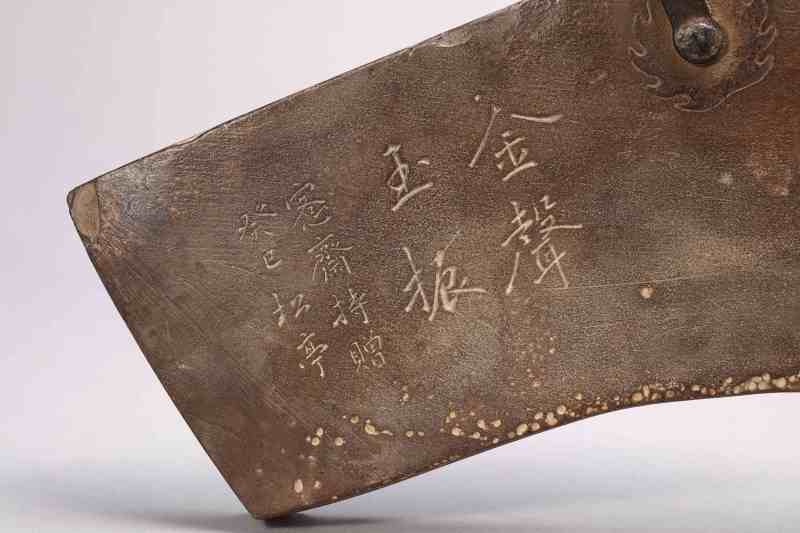 金聲
玉振
愙齋持贈
癸巳松亭